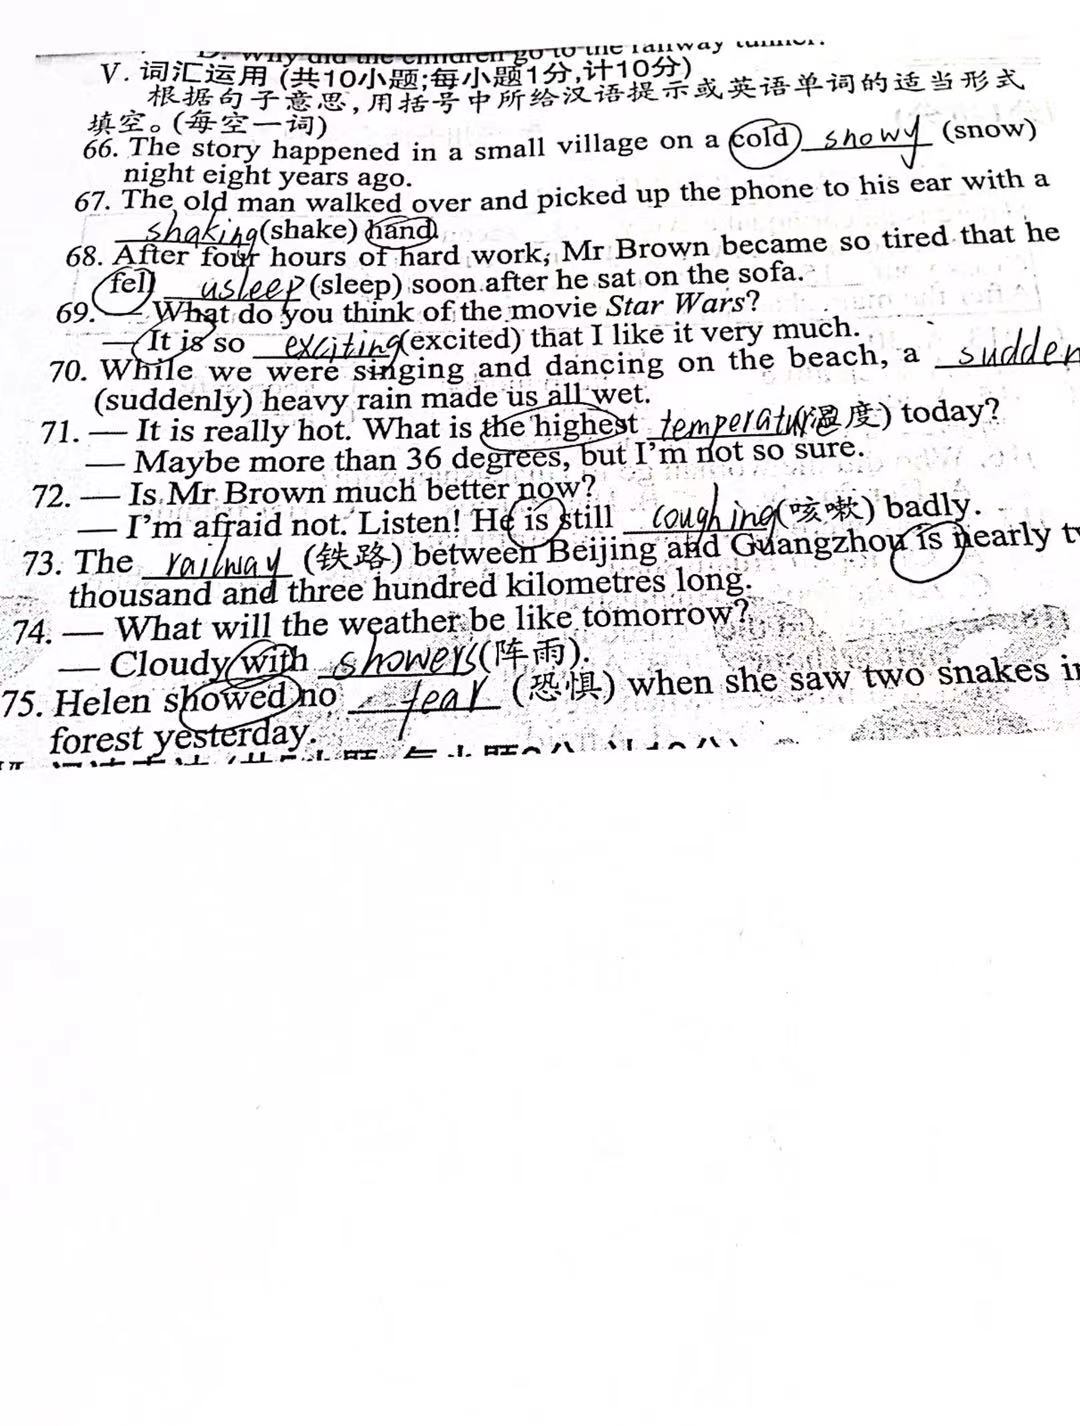 D. Why did the children go to the railway tunnel?
V. 词汇运用 (共10小题;每小题1分,计10分)
根据句子意思,用括号中所给汉语提示或英语单词的适当形式
填空。(每空一词)
66. The story happened in a small village on a cold showy (snow)
night eight years ago.
67. The old man walked over and picked up the phone to his ear with a
shaking (shake) hand.
68. After four hours of hard work, Mr Brown became so tired that he
fell asleep (sleep) soon after he sat on the sofa.
69. — What do you think of the movie Star Wars?
— It is so exciting (excited) that I like it very much.
70. While we were singing and dancing on the beach, a sudden
(suddenly) heavy rain made us all wet.
71. — It is really hot. What is the highest temperatu (温度) today?
— Maybe more than 36 degrees, but I'm not so sure.
72. — Is Mr Brown much better now?
— I'm afraid not. Listen! He is still coughing (咳嗽) badly.
73. The railway (铁路) between Beijing and Guangzhou is nearly
thousand and three hundred kilometres long.
74. — What will the weather be like tomorrow?
— Cloudy with showers (阵雨).
75. Helen showed no fear (恐惧) when she saw two snakes
forest yesterday.